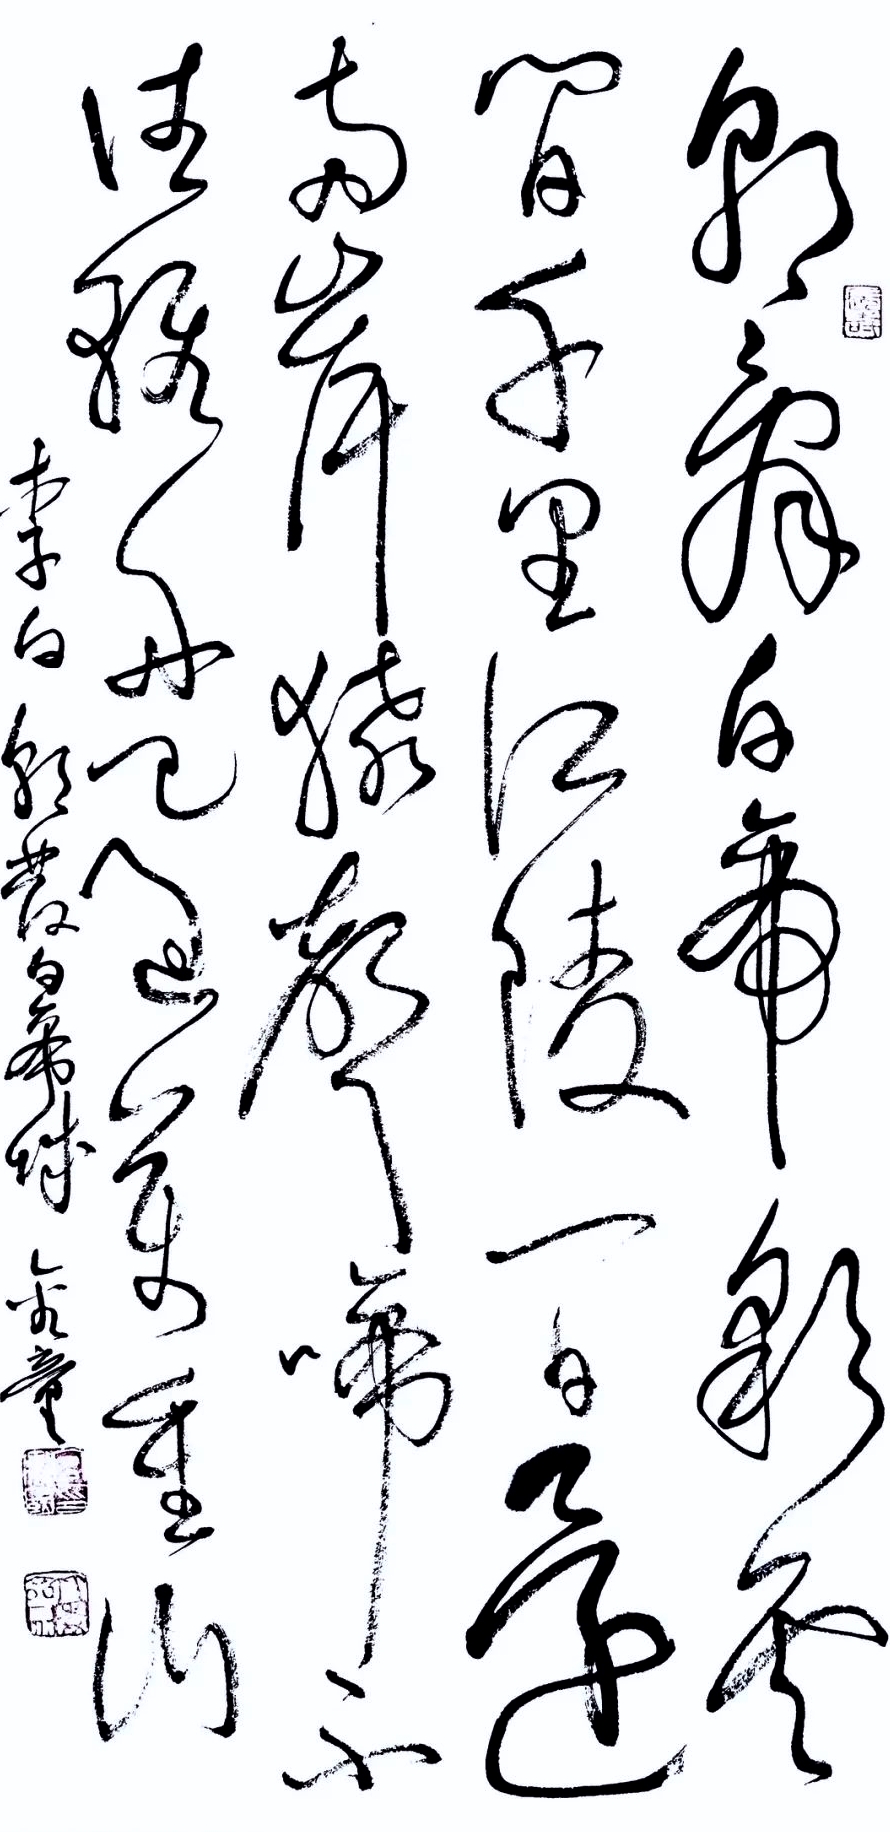 朝辭白帝彩雲
間千里江陵一日還
兩岸猿聲啼不
住輕舟已過萬重山
李白朝發白帝城